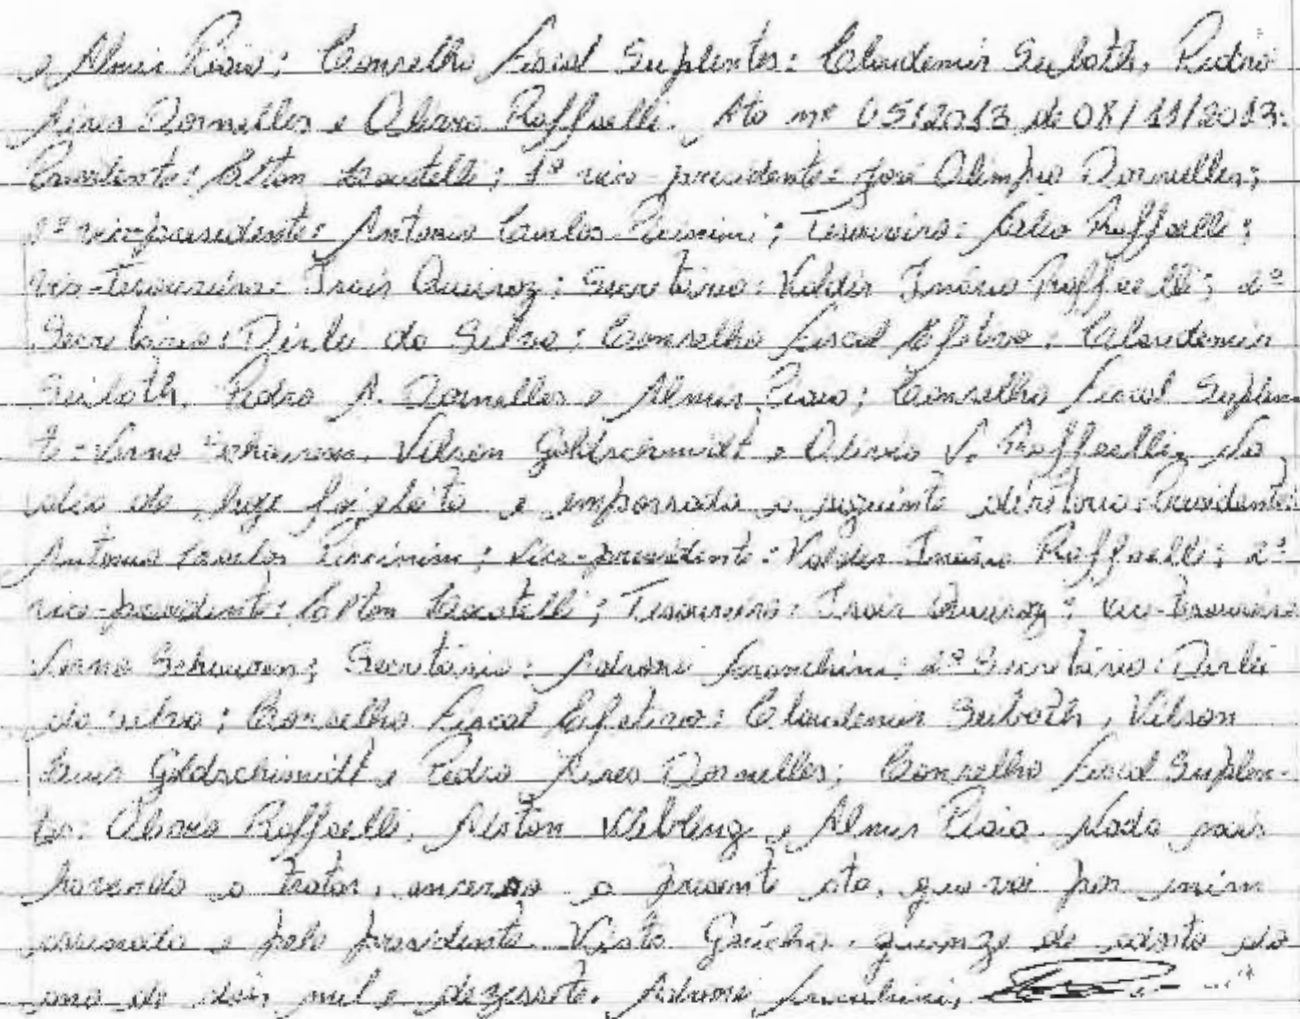 e Almir Piaia; Conselho Fiscal Suplentes: Claudemir Seiboth, Pedro
Aires Dornelles e Olivio Raffaelli. Ata nº 05/2013 de 08/11/2013:
Presidente: Elton ; 1º vice-presidente: José Olimpio Dornelles;
2º vice-presidente: Antonio Carlos Piccinini; Tesoureiro: Raffaelli;
vice-tesoureiro: Queiroz; Secretário: Valdir Inácio Raffaelli; 2º
Secretário: Dirlei da Silva; Conselho Fiscal Efetivo: Claudemir
Seiboth, Pedro A. Dornelles e Almir Piaia; Conselho Fiscal Suplen
te: Verno Schauren, Vilson Goldschmidt e Olivio V. Raffaelli. No
dia de hoje foi eleita e empossada a seguinte diretoria: Presidente:
Antonio Carlos Piccinini; vice-presidente: Valdir Inácio Raffaelli; 2º
vice-presidente: Elton ; Tesoureiro: Queiroz; vice-tesoureiro
Verno Schauren; Secretário: Adroni Franchini; 2º Secretário: Dirlei
da Silva; Conselho Fiscal Efetivo: Claudemir Seiboth, Vilson
Luis Goldschimidt e Pedro Aires Dornelles; Conselho Fiscal Suplen-
tes: Olivio Raffaelli, e Almir Piaia. Nada mais
havendo a tratar, encerro a presente ata, que vai por mim
assinada e pelo presidente. Vista Gaúcha, quinze de agosto do
ano de dois mil e dezessete. Adroni Franchini,